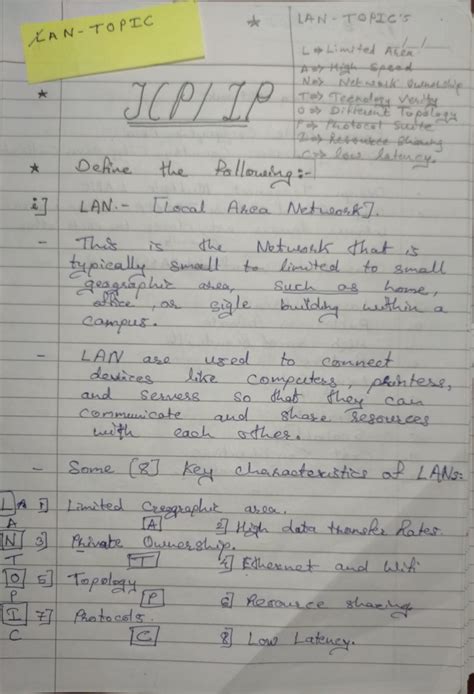 LAN-TOPIC
* LAN-TOPIC'S
L => Limited Area
A => High Speed
N => Network Ownership
T => Tecnology Verity
O => Different Topology
P => Photocol Suite
I => Resource Sharing
C => low latency.
* TCP/IP
* Define the following:-
i] LAN.- [Local Area Network].
- This is the Network that is
typically small to limited to small
geographic area, such as home,
office, or sigle building within a
campus.
- LAN are used to connect
devices like computers, printers,
and servers so that they can
communicate and share resources
with each other.
- Some [8] Key characteristics of LANs:
L A 1] Limited Geographic area.
A [A] 2] High data transfer Rates.
N 3] Private Ownership.
T [T] 4] Ethernet and Wifi
O 5] Topology
P [P] 6] Resource sharing
I 7] Protocols.
C [C] 8] Low Latency.